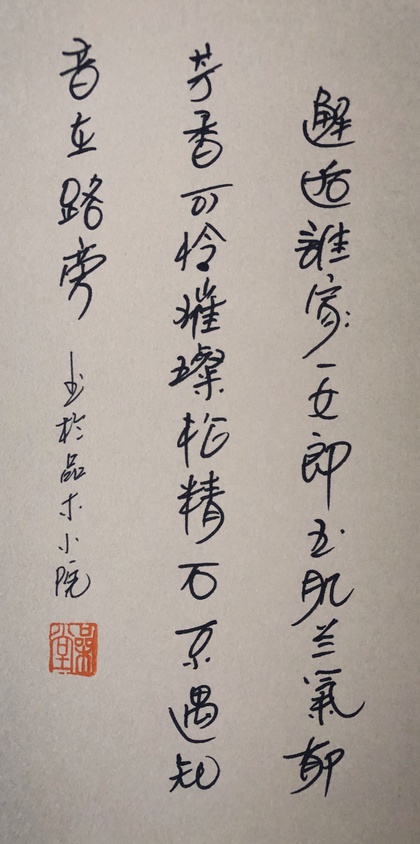 邂逅誰家一女郎玉肌兰氣郁
芳香可怜璀璨松精石不遇知
音在路旁
书於品木小院